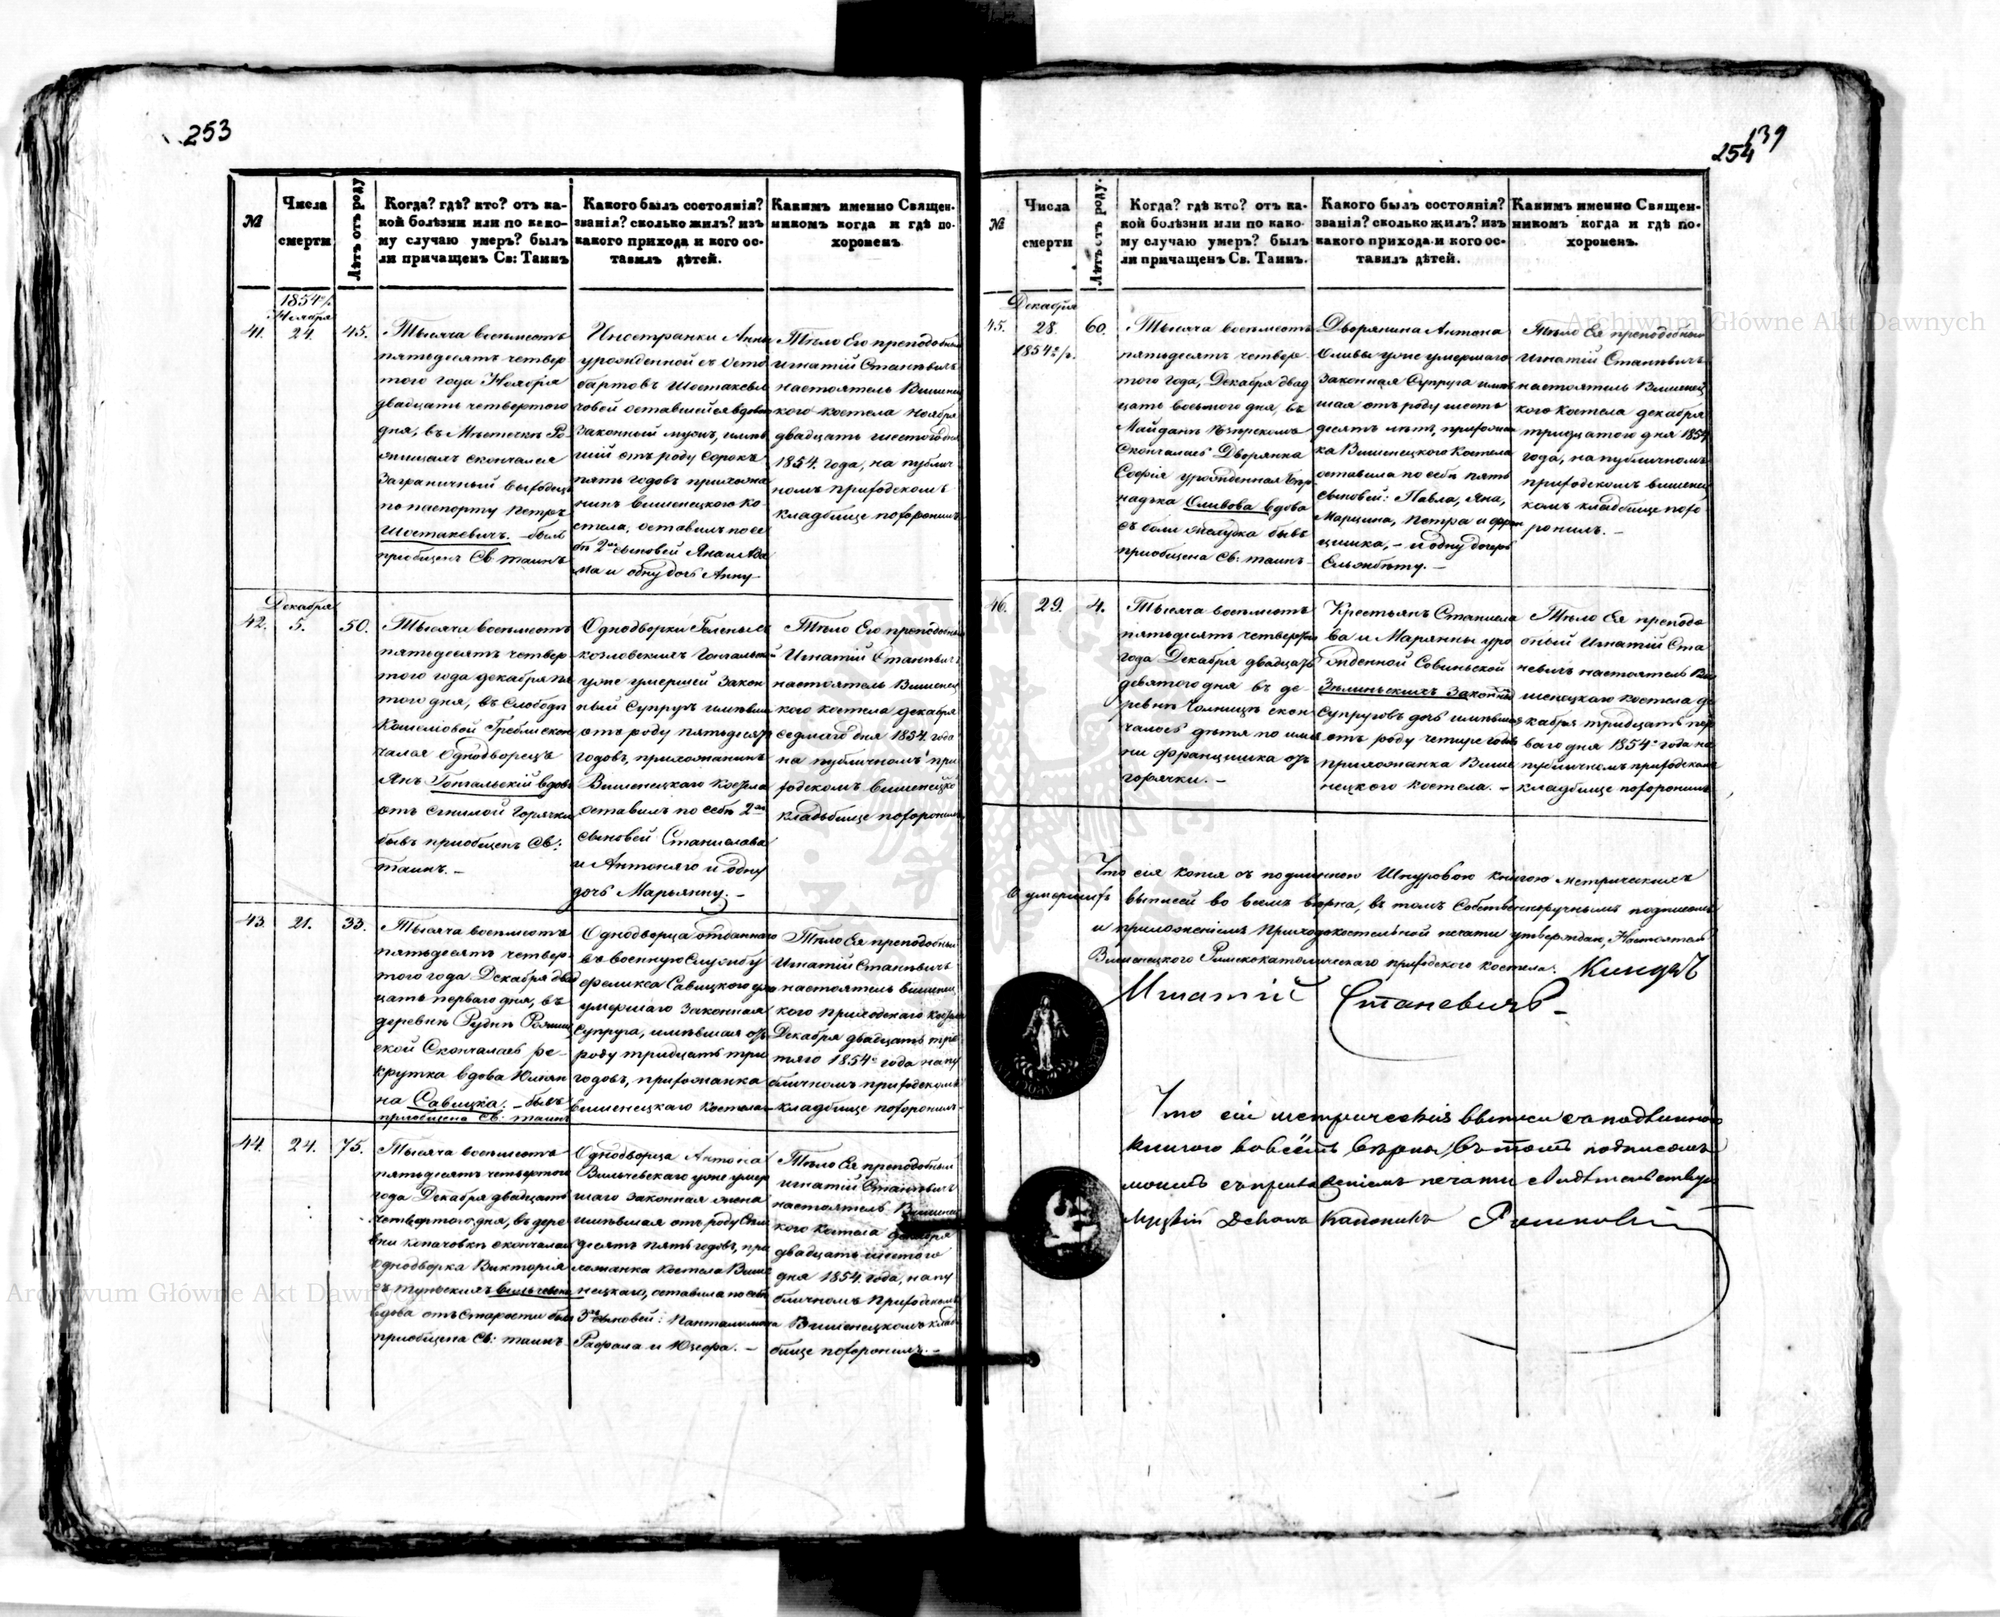 253
№
Числа
смерти
Лѣтъ отъ роду
Когда? гдѣ? кто? отъ ка-
кой болѣзни или по како-
му случаю умеръ? былъ
ли причащенъ Св: Таинъ
Какого былъ состоянія?
званія? сколько жилъ? изъ
какого прихода и кого ос-
тавилъ дѣтей.
Какимъ именно Священ-
никомъ когда и гдѣ по-
хороненъ
1854 г.
Ноября
41.
24.
45.
Тысяча восемьсотъ
пятьдесятъ четвер
того года Ноября
двадцать четвертого
дня, въ Мѣстечкѣ Ро
скончался
Заграничный выходецъ
по паспорту Петръ
Шостакевичъ. - былъ
приобщенъ Св: таинъ
Иностранки Анны
урожденной съ
Шостакеви
човой оставшейся вдовы
Законный мужъ, имѣв
шій отъ роду сорокъ
пять годовъ прихожа
нинъ Вишенецкого Ко
стела, оставилъ по се
бѣ 2хъ сыновей Яна и Ада
ма и одну дочь Анну
Тѣло Его преподобный
Игнатій Станевичъ
настоятель Вишенец
кого костела Ноября
двадцать шестого дня
1854. года, на публич
номъ приходскомъ
кладбище похоронилъ
Декабря
42.
5.
50.
Тысяча восемьсотъ
пятьдесятъ четвер
того года декабря пя
того дня, въ Слободы
Кошеловой Греблѣ скон
чался Однодворецъ
Янъ Гонгальскій вдовъ
отъ гнилой Горячки
бывъ приобщенъ Св:
таинъ. -
Однодворки Геленысъ
козловскихъ Гонгальской
уже умершей Закон
ный Супругъ имѣвш
отъ роду пятьдесятъ
годовъ, прихожанинъ
Вишенецкаго Костела
оставилъ по себѣ 2хъ
сыновей Станислава
и Антонего и одну
дочь Марьянну. -
Тѣло Его преподобный
Игнатій Станевичъ
настоятель Вишенец
кого костела декабря
седмаго дня 1854. года
на публичномъ при
ходскомъ вишенецко
кладбище похоронилъ
43.
21.
33.
Тысяча восемьсотъ
пятьдесятъ четвер-
того года Декабря двад
цать перваго дня, въ
деревни Рудни
ской Скончалась ре-
крутка вдова Юлиян
на Савицка. - бывъ
приобщена Св: таинъ
Однодворца отданнаго
въ военную Службу
феликса Савицкого уже
умершаго Законная
Супруга, имѣвшая отъ
роду тридцать три
годовъ, прихожанка
вишенецкаго костела
Тѣло Ея преподобный
Игнатій Станевичъ
настоятель вишенец
кого приходскаго костела
Декабря двадцать тре
тяго 1854 года на пу
бличномъ приходскомъ
кладбище похоронилъ
44.
24.
75.
Тысяча восемьсотъ
пятьдесятъ четвертого
года Декабря двадцать
четвертого дня, въ дере
вни Копачовкѣ скончалась
однодворка Виктория
вдова отъ Старости бывъ
приобщена Св: таинъ
Однодворца Антона
Вильчевскаго уже умер
шаго законная жена
имѣвшая отъ роду Семъ
десятъ пять годовъ, при
хожанка костела Више
нецкаго, оставила по себѣ
3хъ сыновей: Панталимона
Рафала и Юзефа. -
Тѣло Ея преподобный
Игнатій Станевичъ
настоятель Вишенец
кого костела декабря
двадцать шестого
дня 1854. года, на пу
бличномъ Приходскомъ
Вишенецкомъ клад
бище похоронилъ. -
139
254
№
Числа
смерти
Лѣтъ отъ роду.
Когда? гдѣ кто? отъ ка-
кой болѣзни или по како-
му случаю умеръ? былъ
ли причащенъ Св. Таинъ.
Какого былъ состоянія?
званія? сколько жилъ? изъ
какого прихода и кого ос-
тавилъ дѣтей.
Какимъ именно Священ-
никомъ когда и гдѣ по-
хороненъ.
Декабря
45.
28.
1854 г.
60.
Тысяча восемьсотъ
пятьдесятъ четвер-
того года, Декабря двад
цать восьмого дня, въ
Майданѣ
Скончалась Дворянка
Софія урожденная Бер
надзка Сливова вдова
бывъ
приобщена Св: таинъ
Дворянина Антона
Сливы уже умершаго
Законная Супруга имѣв
шая отъ роду шесть
десятъ лѣтъ, прихожан
ка Вишенецкого Костела
оставила по себѣ пять
сыновей: Павла, Яна,
Марцина, Петра и Фран
цишка, - и одну дочерь
Ельжбѣту. -
Тѣло Ея преподобный
Игнатій Станевичъ
настоятель Вишенец
кого Костела декабря
тридцатого дня 1854
года, на публичномъ
приходскомъ вишенец
комъ кладбище похо
ронилъ. -
46.
29.
4.
Тысяча восемьсотъ
пятьдесятъ четвертого
года Декабря двадцать
девятого дня въ де-
ревнѣ Чолницѣ скон
чалось дѣтя по име
ни францишка отъ
горячки. -
Крестьянъ Станисла
ва и Марянны уро
жденной Совиньской
Зѣлиньскихъ Законныхъ
Супруговъ дочь имѣвшая
отъ роду четыре годы
прихожанка Више
нецкого костела. -
Тѣло Ея преподо
бный Игнатій Ста
невичъ настоятель Ви
шенецкаго костела де
кабря тридцать пер
ваго дня 1854 года на
публичномъ приходском
кладбище похоронилъ
Что сія копія съ подлинною Шнуровою книгою метрическихъ
О умершихъ выписей во всемъ вѣрна, въ томъ Собственноручнымъ подписомъ
и приложеніемъ Приходокостельной печати утверждаю, Настоятель
Вишенецкого Римскокатолическаго приходского костела: Ксендзъ
Игнатій Станевичъ.
Что сіи метрическія выписи съ подлинною
книгою во всемъ вѣрны, въ томъ подписомъ
моимъ съ приложеніемъ печати свидѣтельствую
Луцкій Деканъ Каноникъ
Archiwum Główne Akt Dawnych
Archiwum Główne Akt Dawnych